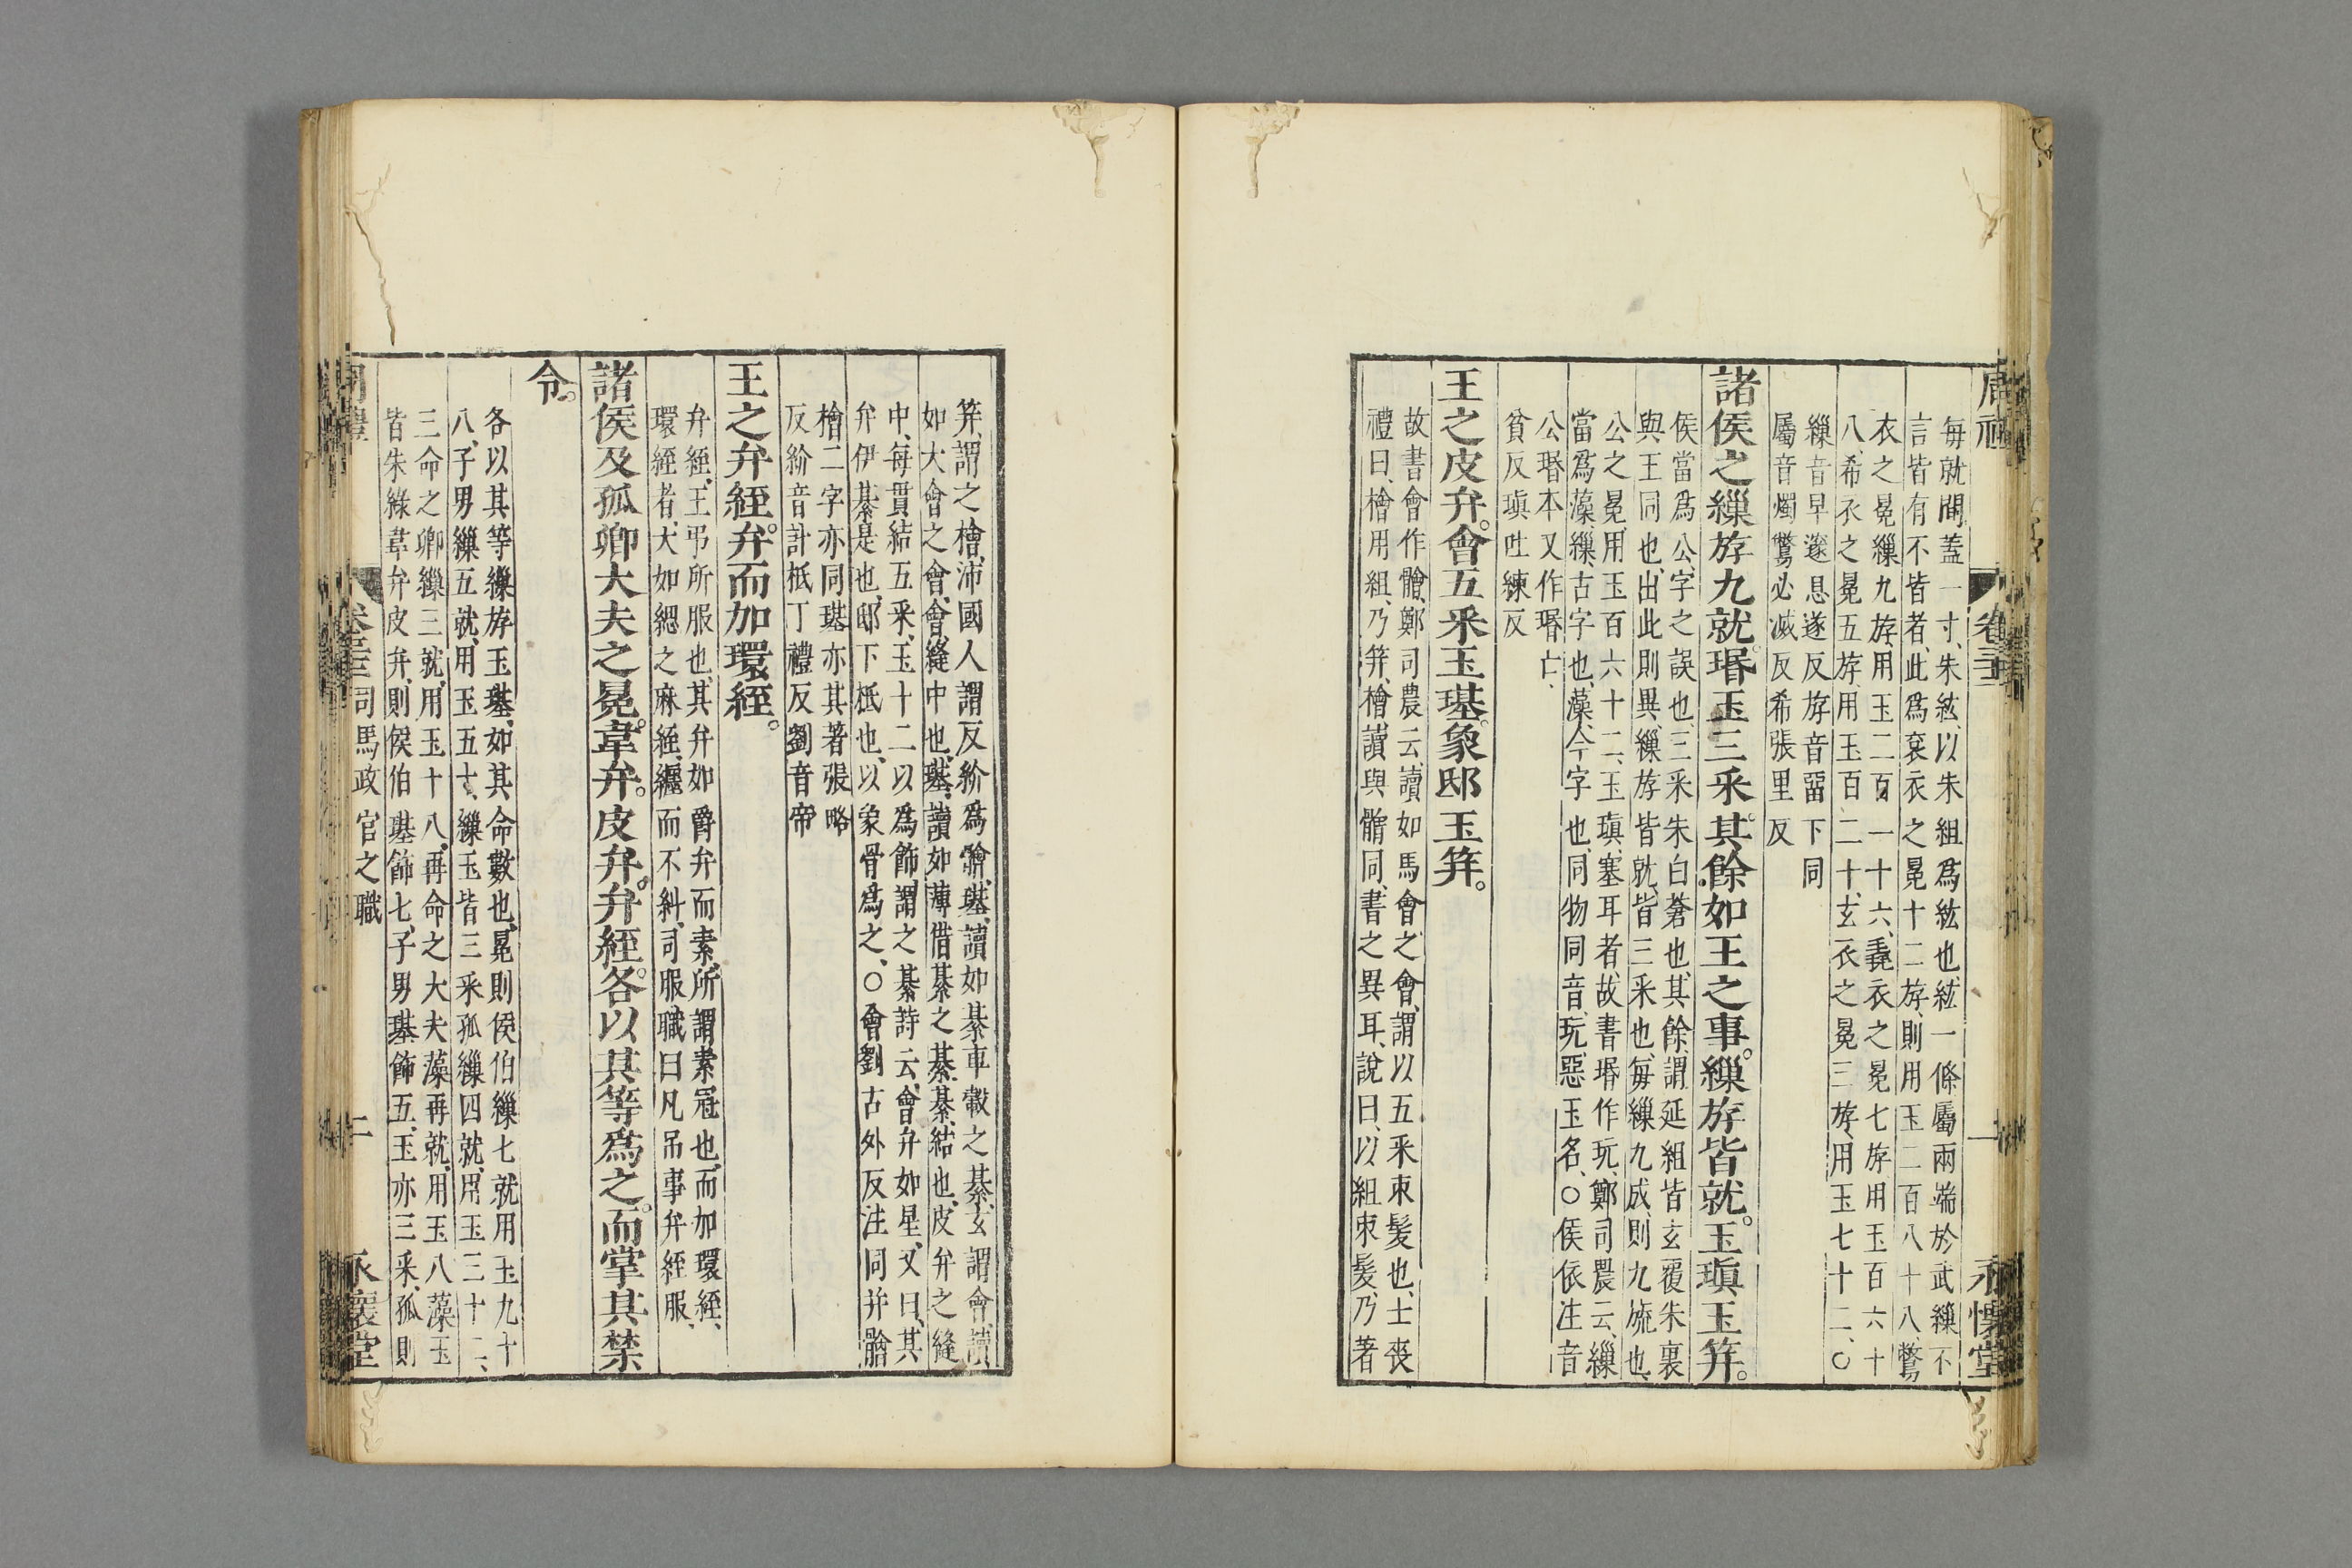 周禮 卷三十二 一 永懷堂
每就間蓋一寸、朱紘、以朱組爲紘也、紘一條屬兩端於武繅不
言皆有不皆者、此爲袞衣之冕十二斿、則用玉二百八十八、鷩
衣之冕繅九斿、用玉二百一十六、毳衣之冕七斿用玉百六十
八、希衣之冕五斿、用玉百二十、玄衣之冕三斿、用玉七十二、○
繅音早邃息遂反斿音畱下同
屬音燭鷩必滅反希張里反
諸侯之繅斿九就。瑉玉三采。其餘如王之事。繅斿皆就。玉瑱玉筓。
侯當爲公、字之誤也、三采朱白蒼也、其餘、謂延紐皆玄覆朱裏
與王同也、出此則異、繅斿皆就、皆三采也、每繅九成、則九旒也、
公之冕、用玉百六十二、玉瑱、塞耳者、故書瑉作玩、鄭司農云、繅
當爲藻、繅、古字也、藻、今字也、同物同音、玩、惡玉名、○侯依注音
公瑉本又作瑉亡、
貧反瑱吐練反
王之皮弁。會五采玉璂。象邸玉筓。
故書會作䯤、鄭司農云、讀如馬會之會、謂以五采束髮也、士喪
禮曰、檜用組、乃筓、檜讀與䯤同、書之異耳、說曰、以組束髮、乃著
筓、謂之檜、沛國人謂反紒爲䯤、璂、讀如綦車轂之綦、玄謂會、讀
如大會之會、會、縫中也、璂、讀如薄借綦之綦、綦、結也、皮弁之縫
中、每貫結五采、玉十二以爲飾、謂之綦、詩云、會弁如星、又曰、其
弁伊綦、是也、邸、下柢也、以象骨爲之、○會劉古外反注同并䯤
檜二字亦同璂亦其著張略
反紒音計柢丁禮反劉音帝
王之弁絰。弁而加環絰。
弁絰、王弔所服也、其弁如爵弁而素、所謂素冠也、而加環絰、
環絰者、大如緦之麻絰、纏而不糾、司服職曰凡吊事弁絰服、
諸侯及孤卿大夫之冕。韋弁。皮弁。弁絰。各以其等爲之。而掌其禁
令。
各以其等、繅斿玉璂、如其命數也、冕則侯伯繅七就用玉九十
八、子男繅五就、用玉五十、繅玉皆三采孤繅四就、用玉三十二、
三命之卿繅三就、用玉十八、再命之大夫藻再就、用玉八藻玉
皆朱綠韋弁皮弁、則侯伯璂飾七、子男璂飾五、玉亦三采、孤則
周禮 卷三十二 司馬政官之職 二 永懷堂